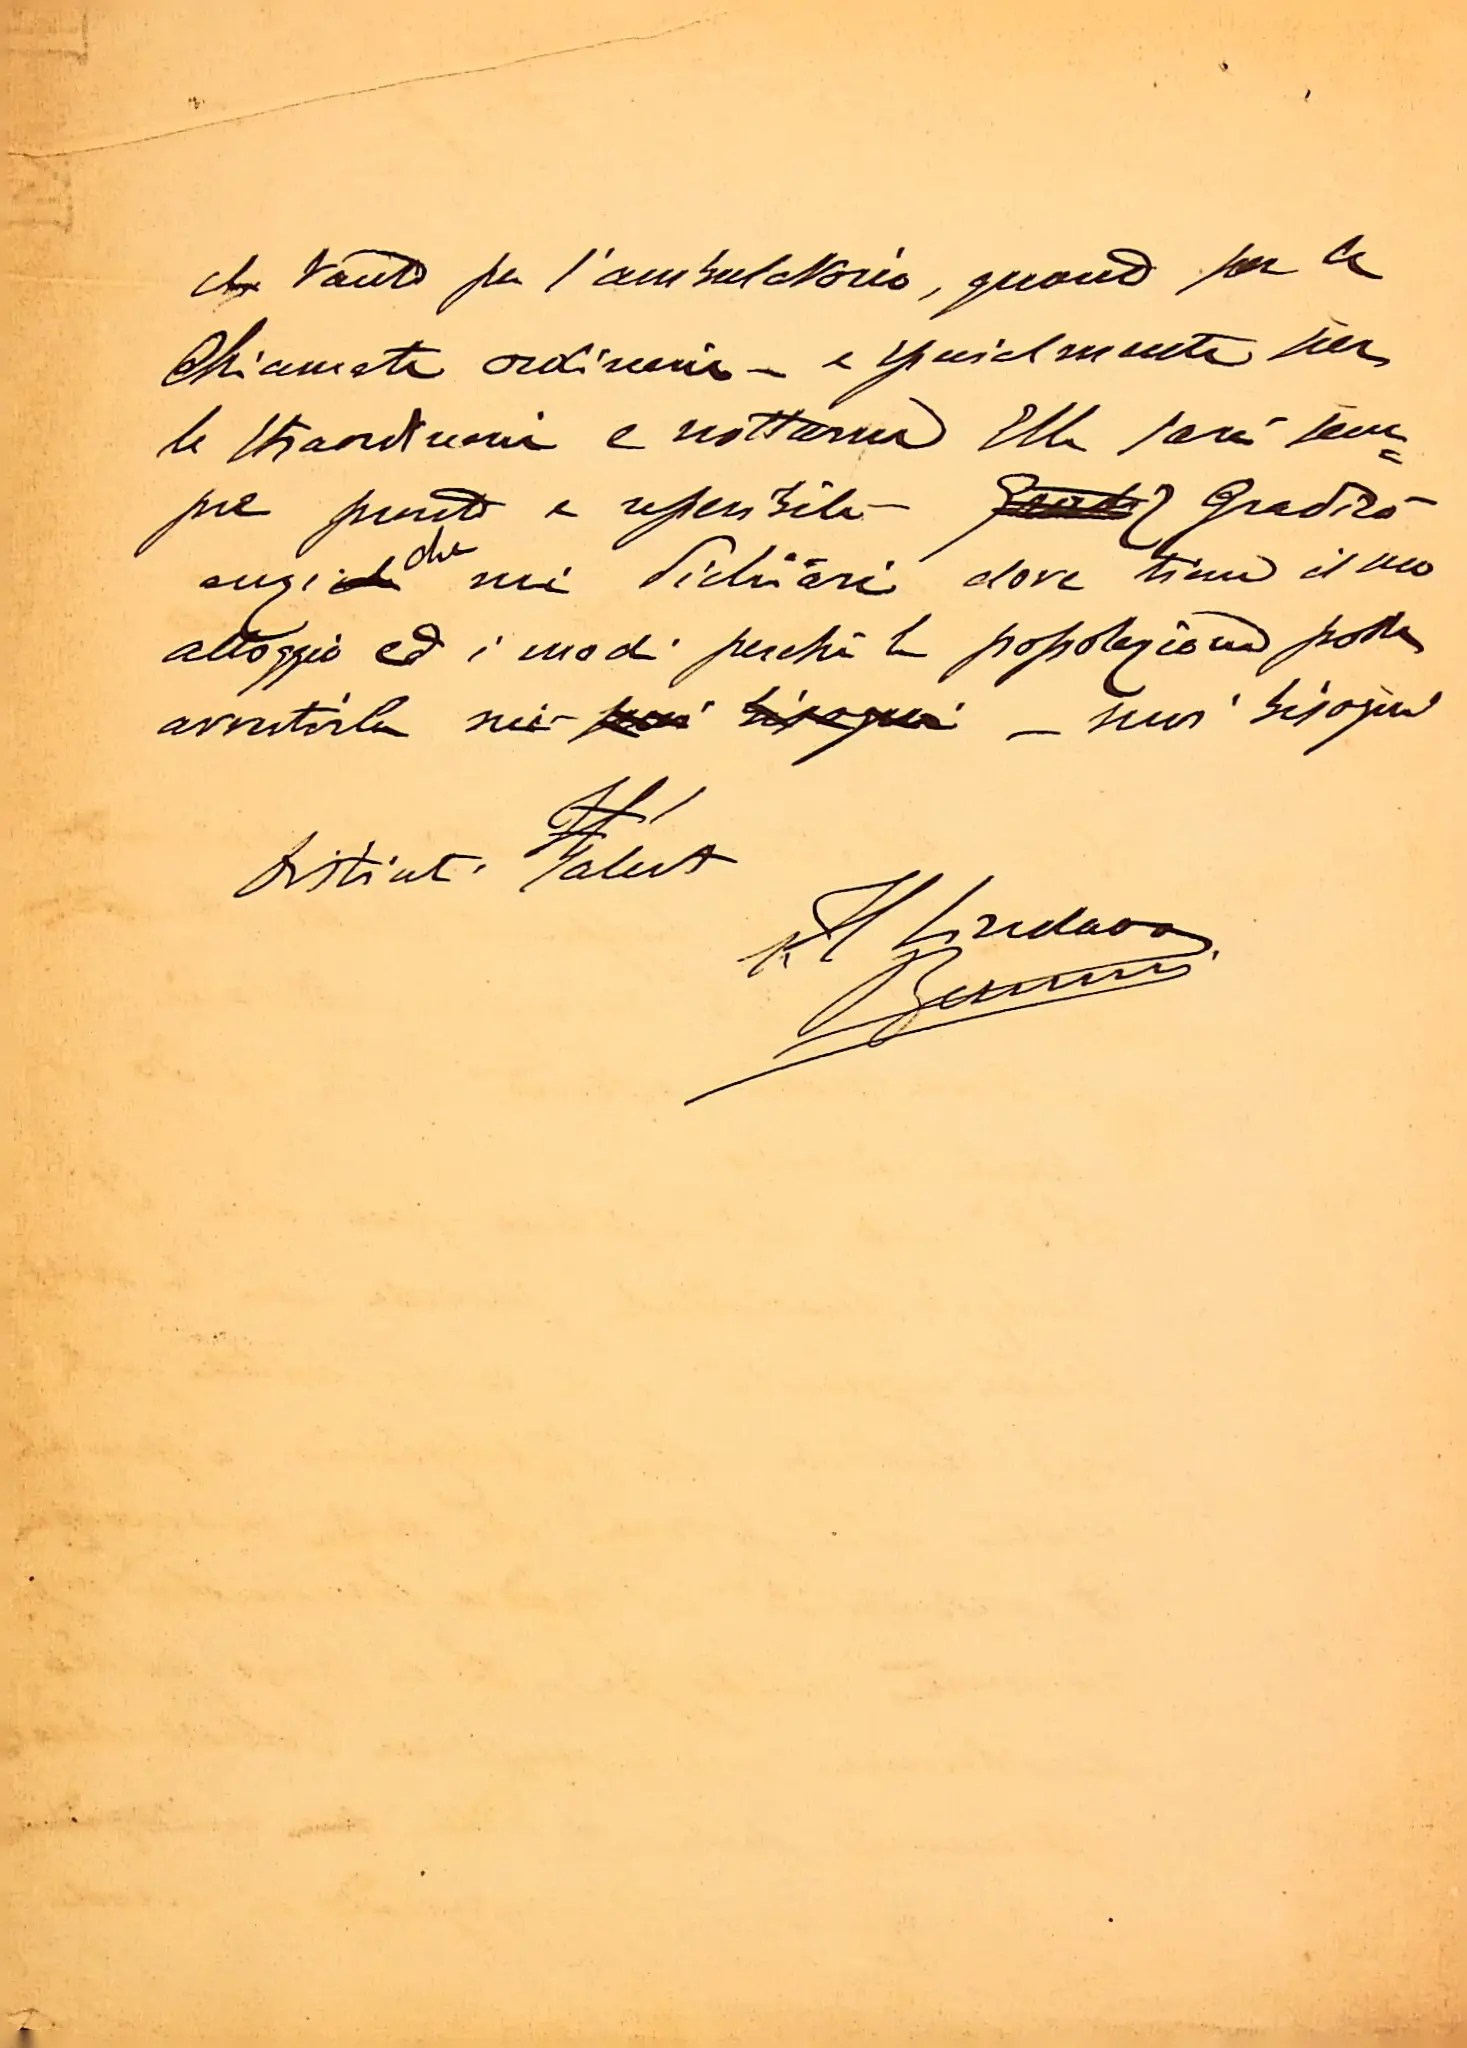 che tanto per l'ambulatorio, quanto per le
chiamate ordinarie – e specialmente per
le straordinarie e notturne Ella sarà sem=
pre pronto e reperibile – Gradirò
anzi che mi dichiari dove tiene il suo
alloggio ed i modi perché la popolazione possa
avvertirla nei – suoi bisogni – suoi bisogni
Distinti saluti
Il Sindaco